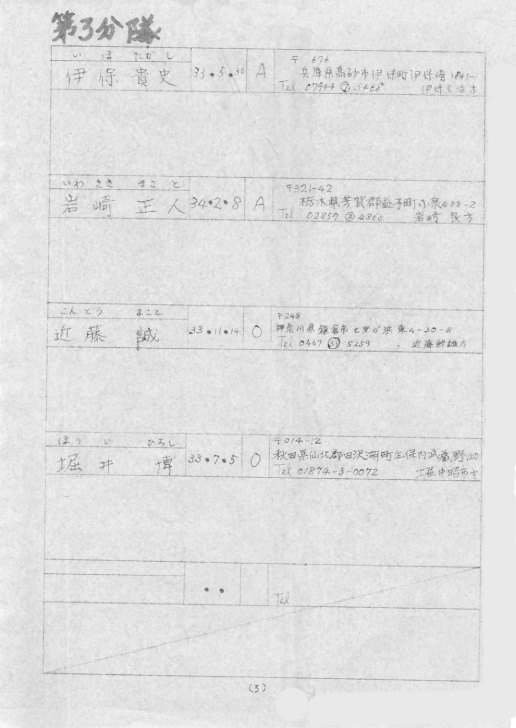 第3分隊
いほ たかし
伊保貴史 33・5・ A
〒 676
兵庫県高砂市伊保町伊保
Tel 07944
いわさき まこと
岩崎 正人 34・2・8 A
〒321-42
栃木県芳賀郡益子町
Tel 02857 ② 4866 岩崎 方
こんどう まこと
近藤 誠 33・11・14 O
〒248
神奈川県鎌倉市七里ガ浜東4-30-
Tel 0467 5259 近藤 方
ほりい ひろし
堀井 博 33・7・5 O
〒014-12
秋田県仙北郡田沢湖町生保内武蔵野
Tel 01874-3-0072 堀井昭市方
・・
Tel
(3)